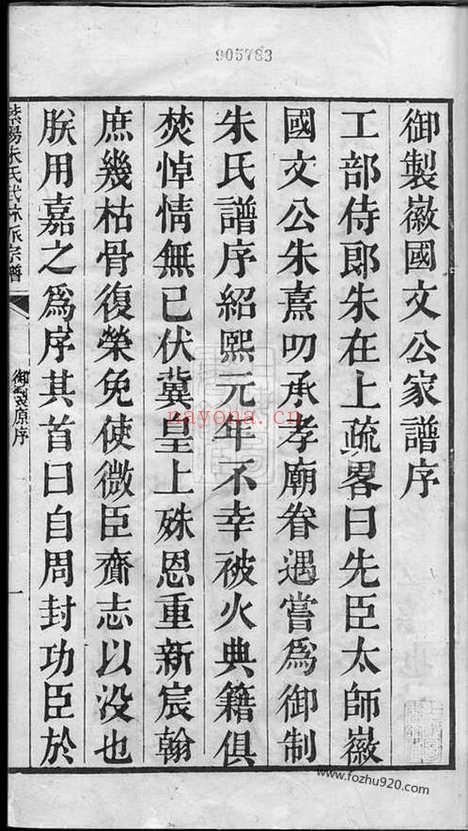 905783
御製徽國文公家譜序
工部侍郎朱在上疏畧曰先臣太師徽
國文公朱熹叨承孝廟眷遇嘗爲御制
朱氏譜序紹熙元年不幸被火典籍俱
焚悼情無已伏冀皇上殊恩重新宸翰
庶幾枯骨復榮免使微臣齎志以没也
朕用嘉之爲序其首曰自周封功臣於
紫陽朱氏武林派宗譜
御製原序
一
nayona.cn
www.fozhu920.com